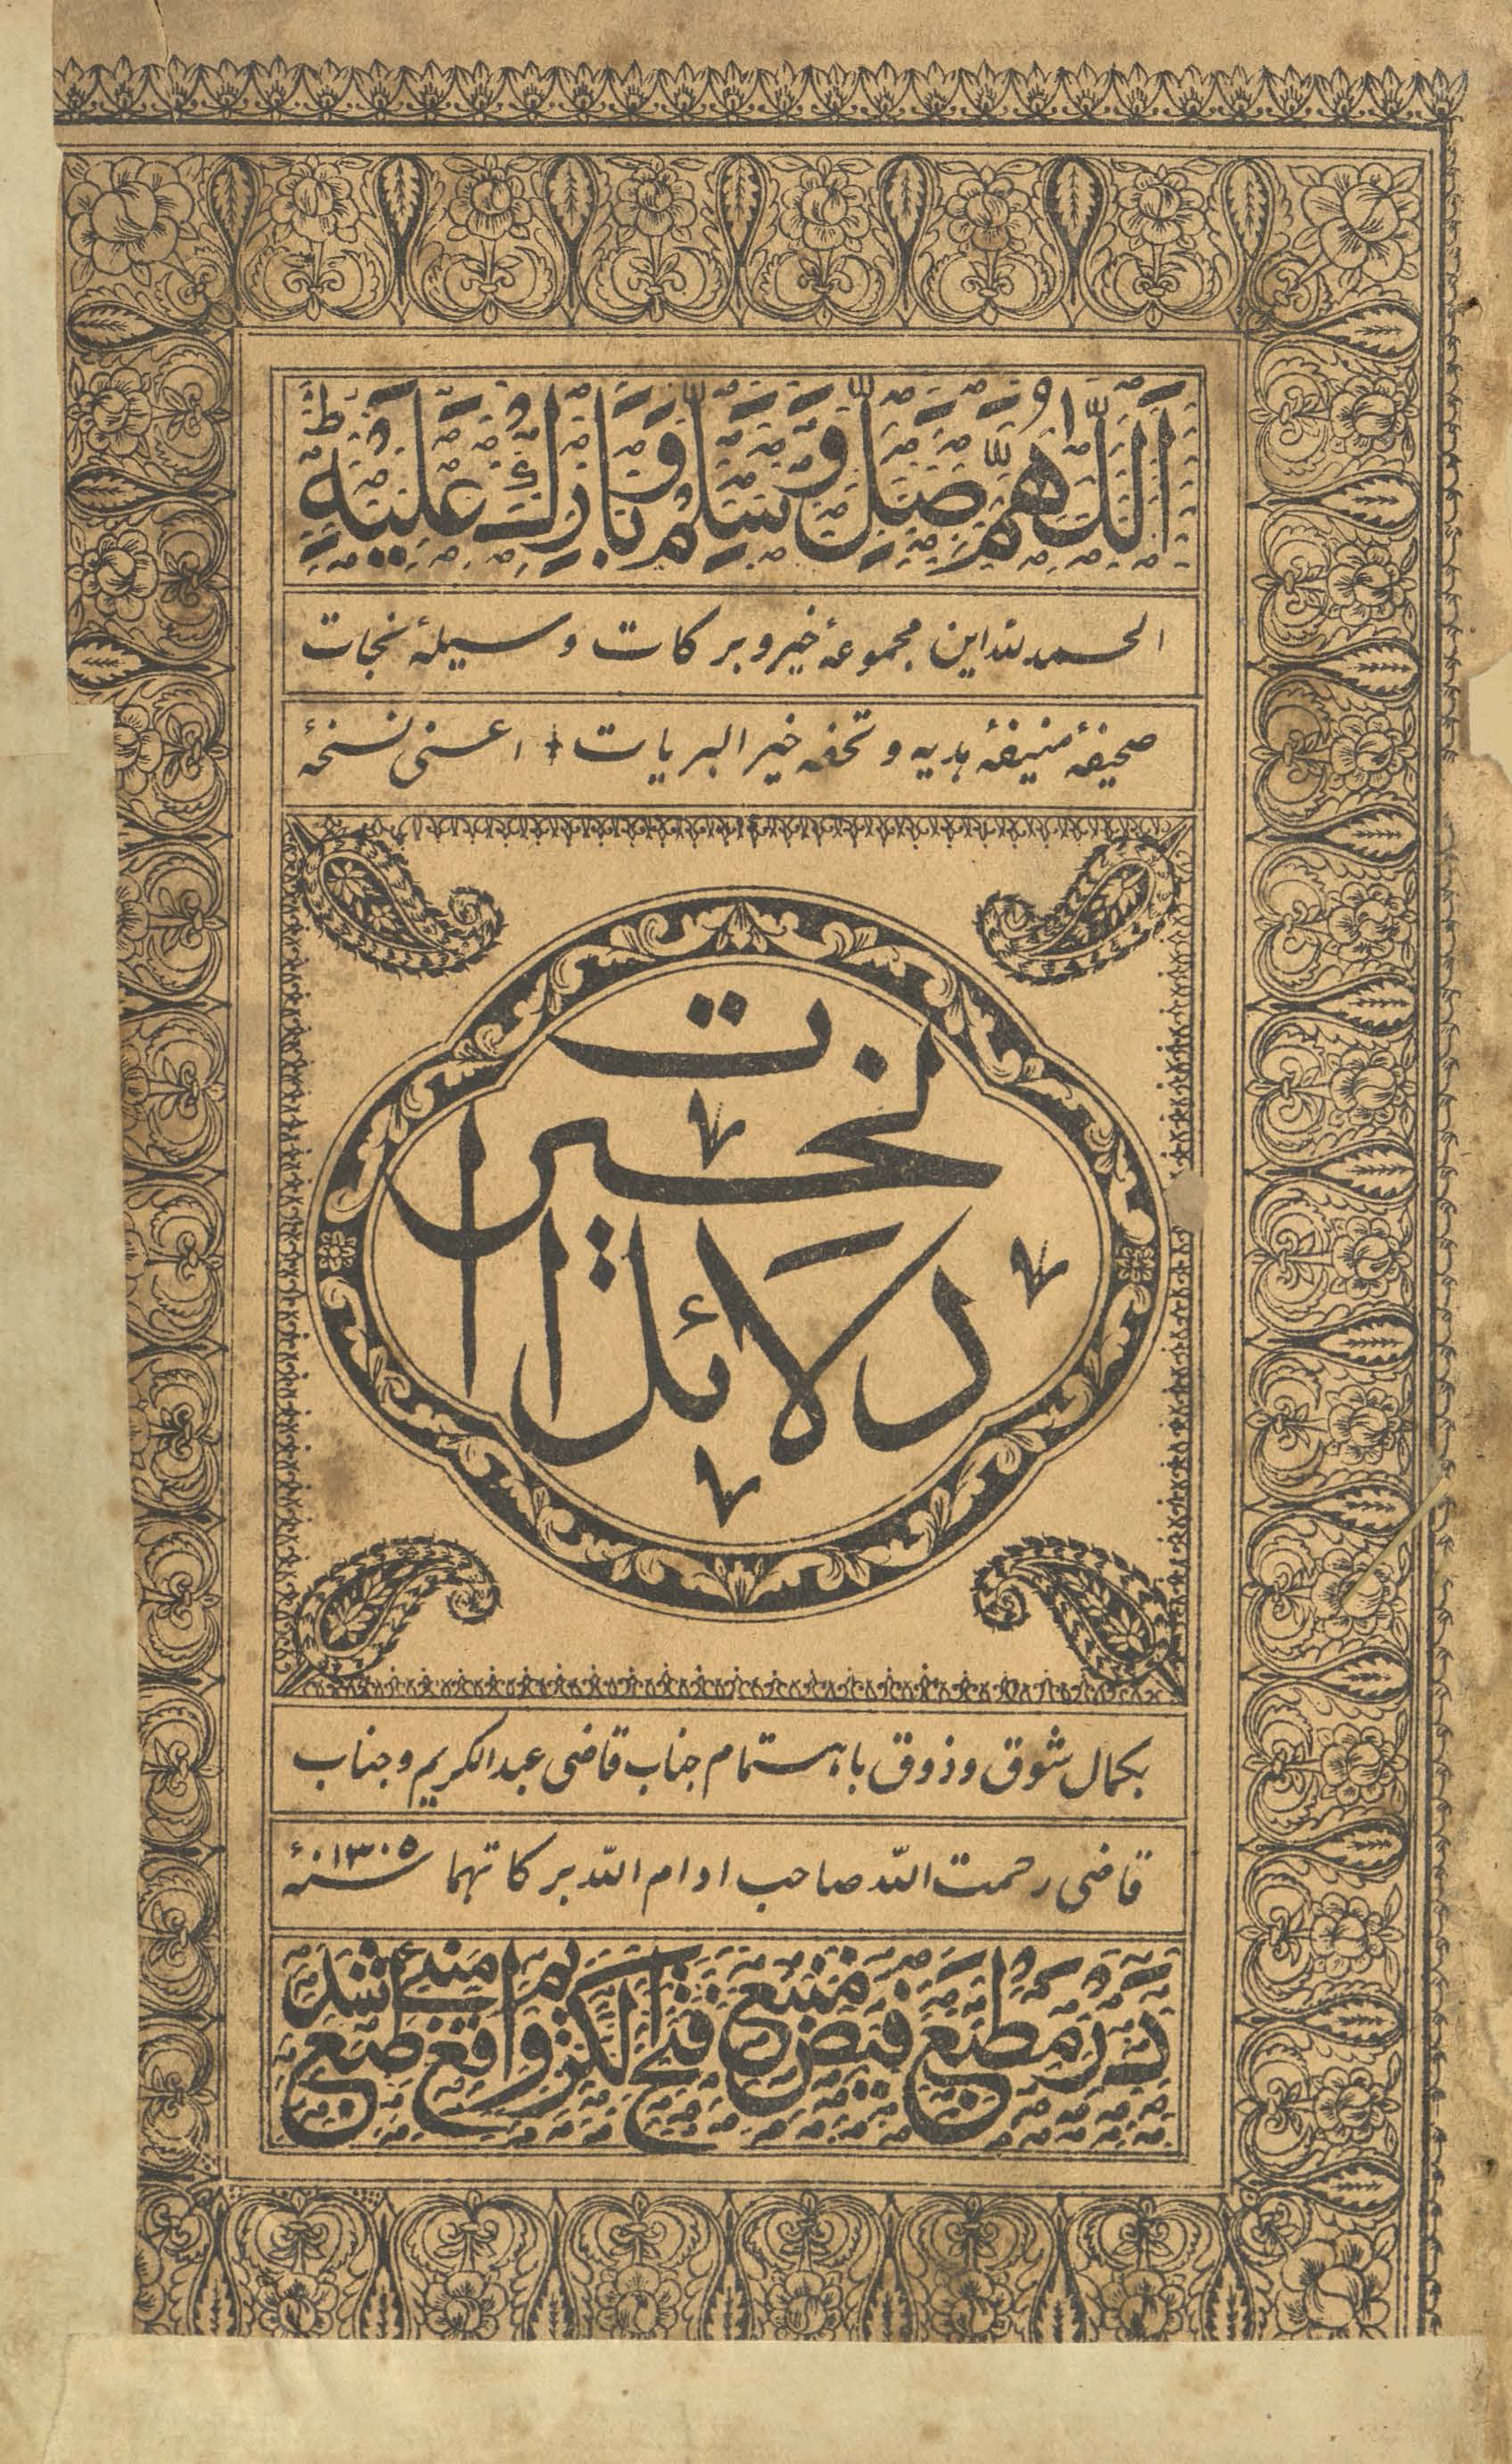 اَللّٰهُمَّ صَلِّ وَسَلِّمْ وَبَارِكْ عَلَيْهِ ط
الحمد لله این مجموعهٔ خیر و برکات وسیلهٔ نجات
صحیفهٔ منیفهٔ ہدیه و تحفه خیر البریات ٭ اعنی نسخهٔ
دلائل الخیرات
بکمال شوق و ذوق باہتمام جناب قاضی عبد الکریم و جناب
قاضی رحمت اللّٰه صاحب ادام اللّٰه برکاتهما سنهٔ ۱۳۰۵
در مطبع فیض منبع فتح الکریم واقع بمبئی طبع شد